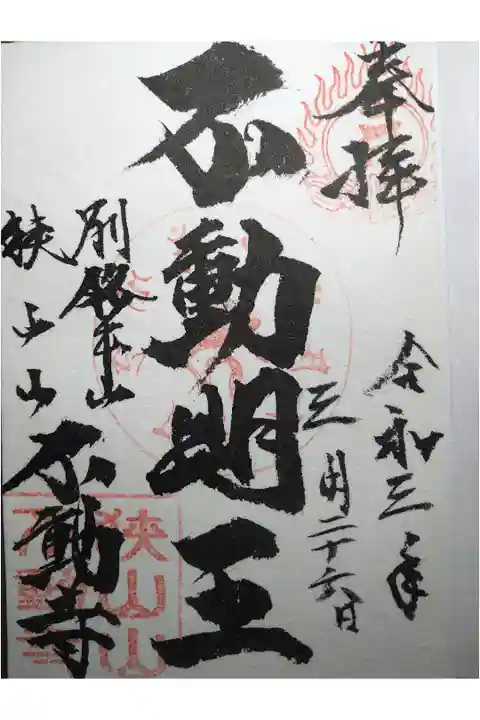 奉拝
令和三年
三月二十六日
不動明王
別格本山
狭山山不動寺
狭山山
不動寺